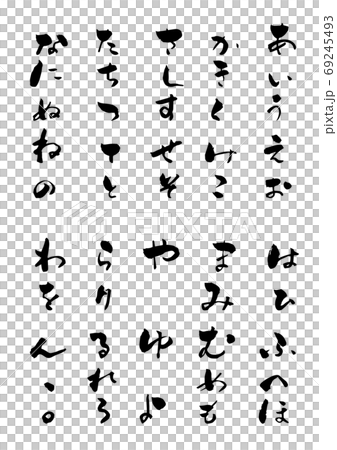 あいうえお
かきくけこ
さしすせそ
たちつてと
なにぬねの
はひふへほ
まみむめも
やゆよ
らりるれろ
わをん、。
PIXTA
pixta.jp - 69245493